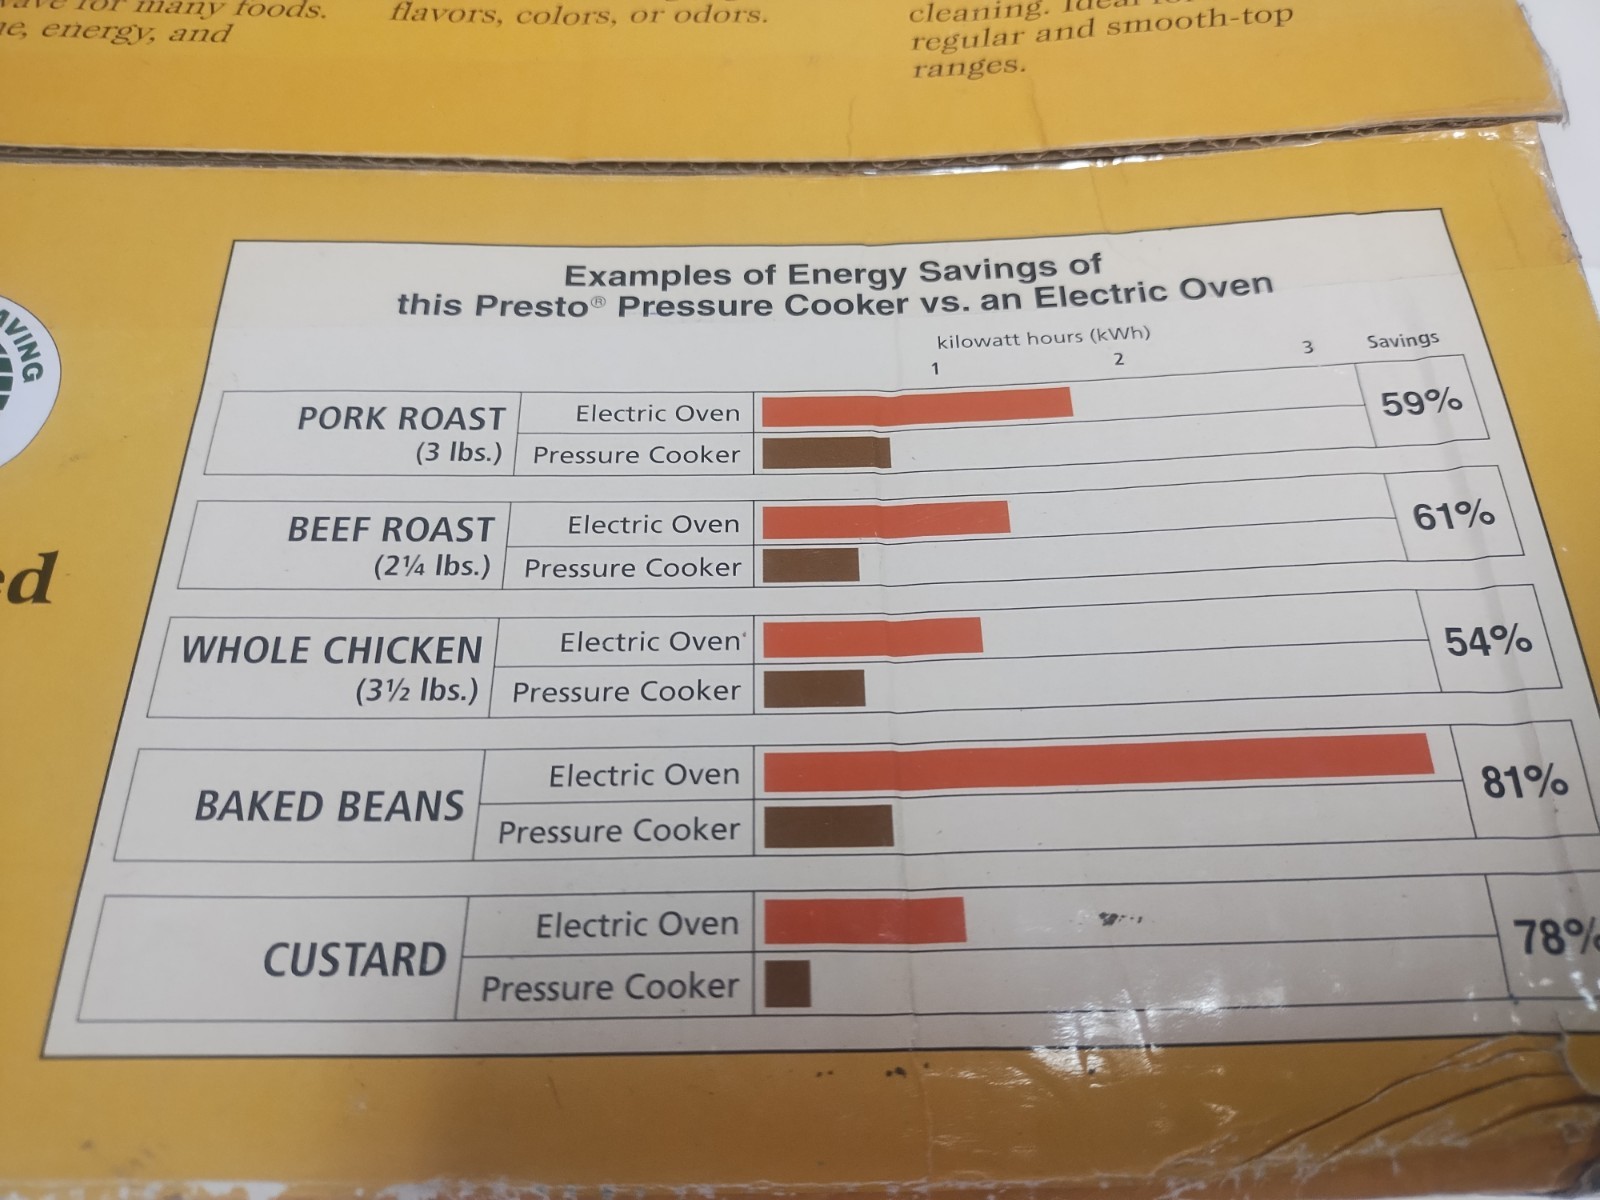 for many foods.
energy, and
flavors, colors, or odors.
cleaning. Ideal
regular and smooth-top
ranges.
ed
Examples of Energy Savings of
this Presto® Pressure Cooker vs. an Electric Oven
kilowatt hours (kWh)
1 2 3 Savings
PORK ROAST
(3 lbs.)
Electric Oven
Pressure Cooker
59%
BEEF ROAST
(2¼ lbs.)
Electric Oven
Pressure Cooker
61%
WHOLE CHICKEN
(3½ lbs.)
Electric Oven
Pressure Cooker
54%
BAKED BEANS
Electric Oven
Pressure Cooker
81%
CUSTARD
Electric Oven
Pressure Cooker
78%